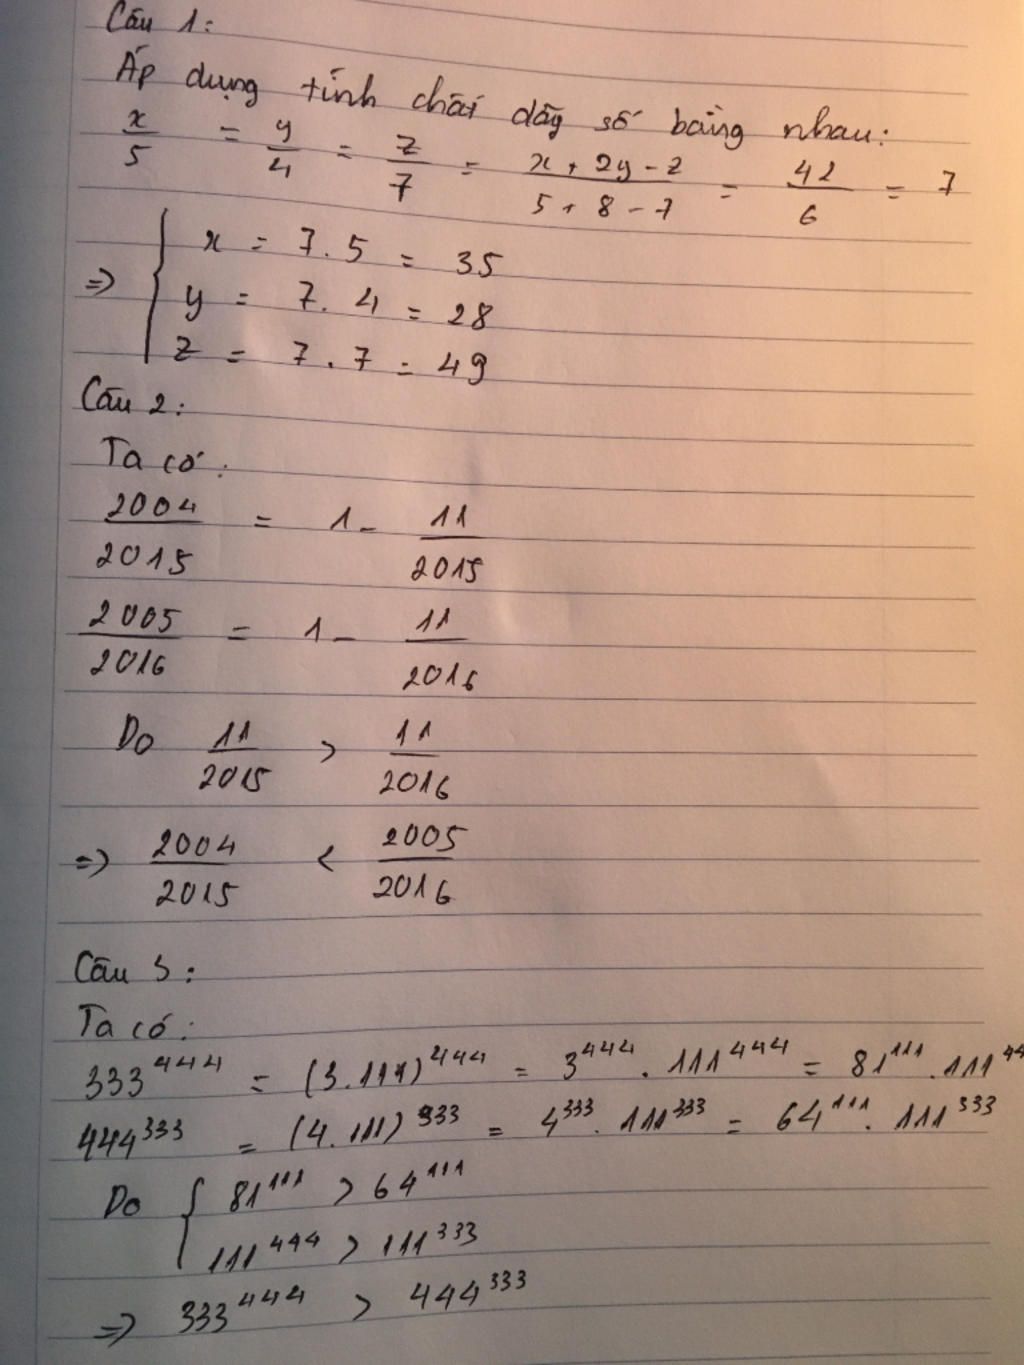 Câu 1:
Áp dụng tính chất dãy số bằng nhau:
x/5 = y/4 = z/7 = (x + 2y - z)/(5 + 8 - 7) = 42/6 = 7
=> { x = 7.5 = 35
y = 7.4 = 28
z = 7.7 = 49
Câu 2:
Ta có:
2004/2015 = 1 - 11/2015
2005/2016 = 1 - 11/2016
Do 11/2015 > 11/2016
=> 2004/2015 < 2005/2016
Câu 3:
Ta có:
333^444 = (3.111)^444 = 3^444 . 111^444 = 81^111 . 111^44
444^333 = (4.111)^333 = 4^333 . 111^333 = 64^111 . 111^333
Do { 81^111 > 64^111
111^444 > 111^333
=> 333^444 > 444^333